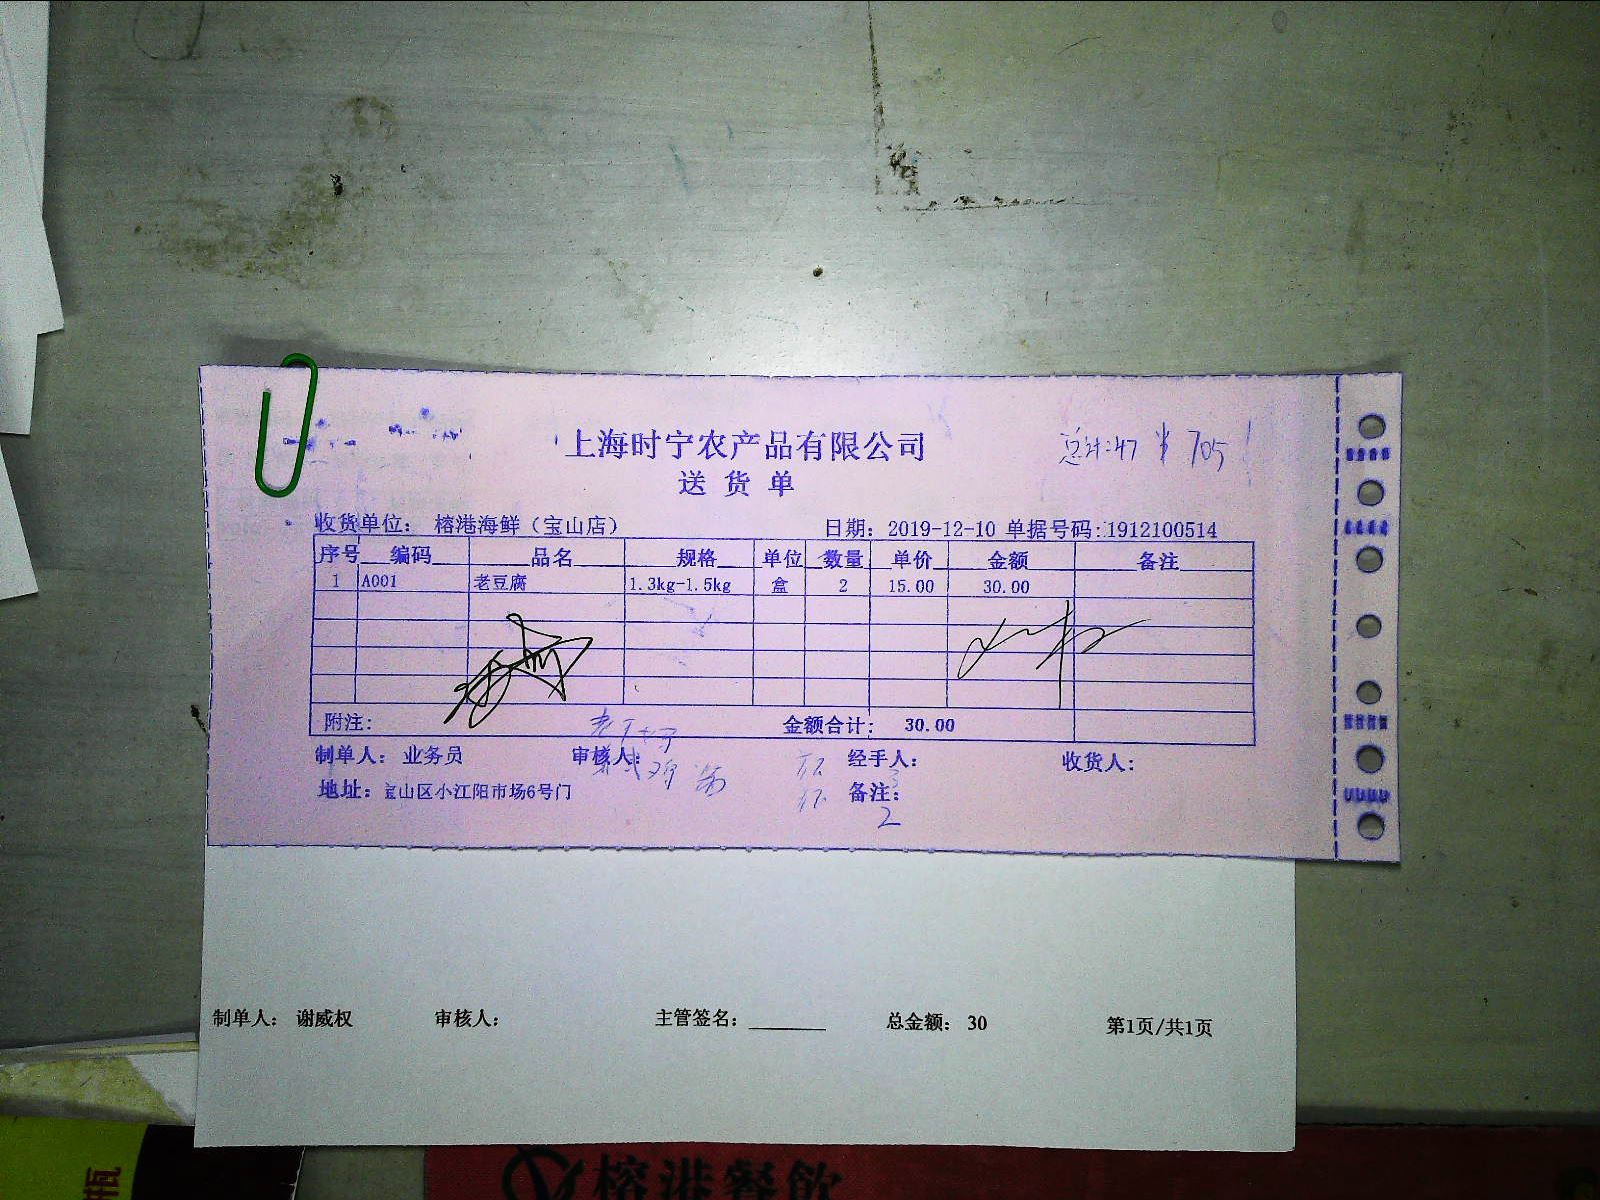 上海时宁农产品有限公司
总计:47 ¥ 705
送货单
收货单位: 榕港海鲜（宝山店） 日期: 2019-12-10 单据号码:1912100514
序号 编码 品名 规格 单位 数量 单价 金额 备注
1 A001 老豆腐 1.3kg-1.5kg 盒 2 15.00 30.00
附注: 金额合计: 30.00
制单人: 业务员 审核人: 经手人: 收货人:
地址: 宝山区小江阳市场6号门 备注:
2
制单人: 谢威权 审核人: 主管签名: 总金额: 30 第1页/共1页
榕港餐饮